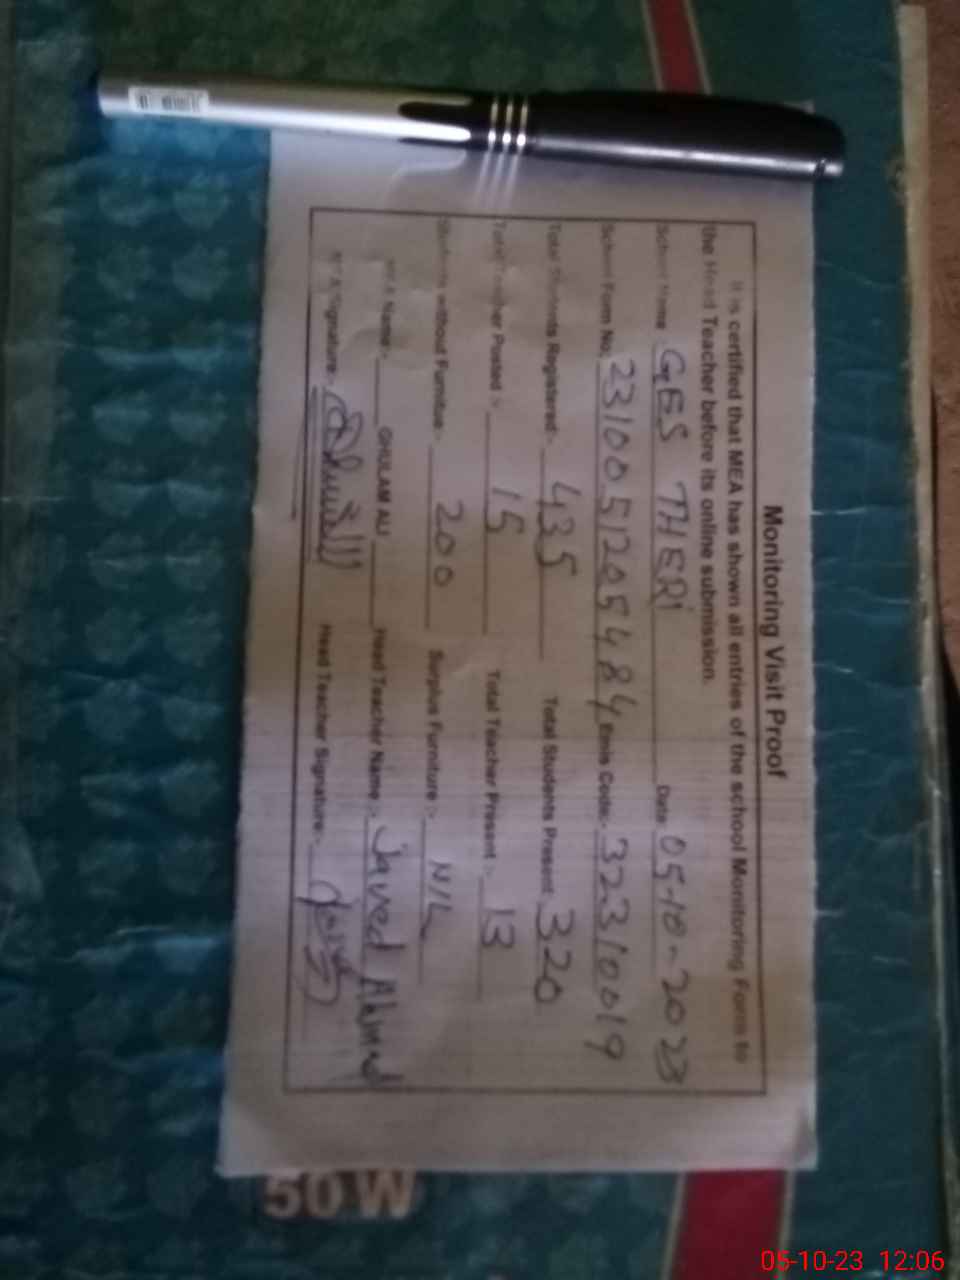 Monitoring Visit Proof
It is certified that MEA has shown all entries of the school Monitoring Form to
the Head Teacher before its online submission.
School Name GES THERI Date 05-10-2023
School Form No. 2310051205484 Emis Code:- 32310019
Total Students Registered:- 435 Total Students Present 320
Total Teacher Posted :- 15 Total Teacher Present :- 13
Students without Furniture:- 200 Surplus Furniture :- NIL
Name:- GHULAM ALI Head Teacher Name :- Javed Ahmed
Signature:- Head Teacher Signature:-
50 W
05-10-23 12:06